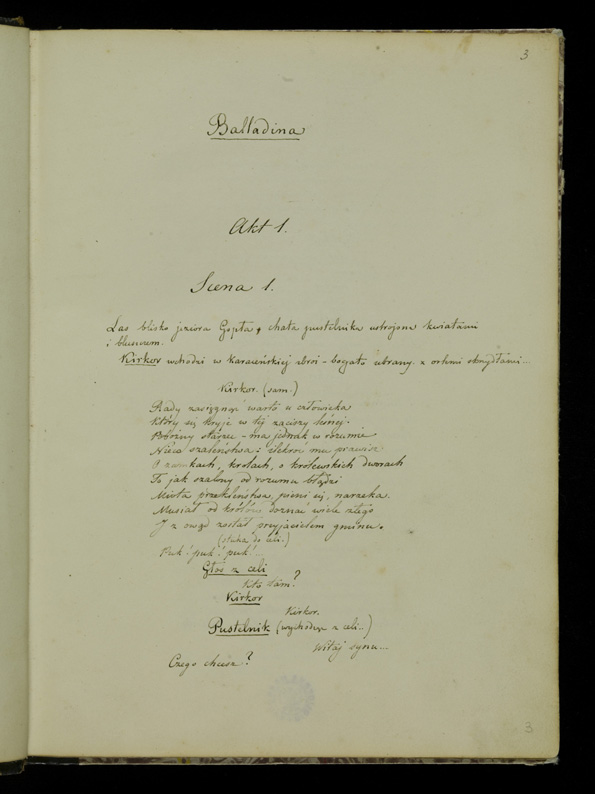 3
Balladina
Akt 1.
Scena 1.
Las blisko jeziora Gopła, chata pustelnika ustrojona kwiatami
i bluszczem.
Kirkor wchodzi w karaceńskiej zbroi - bogato ubrany. z orlemi skrzydłami...
Kirkor. (sam.)
Rady zasięgnąć warto u człowieka
Który się kryje w tej zaciszy leśnej.
Pobożny starzec - ma jednak w rozumie
Nieco szaleństwa: ilekroć mu prawisz
O zamkach, królach, o królewskich dworach
To jak szalony od rozumu błądzi
Miota przekleństwa, pieni się, narzeka.
Musiał od królów doznać wiele złego
I z owąd został przyjacielem gminu.
(stuka do celi.)
Puk! puk! puk!...
Głos z celi
Kto tam?
Kirkor
Kirkor.
Pustelnik (wychodząc z celi...)
Witaj synu...
Czego chcesz?
3